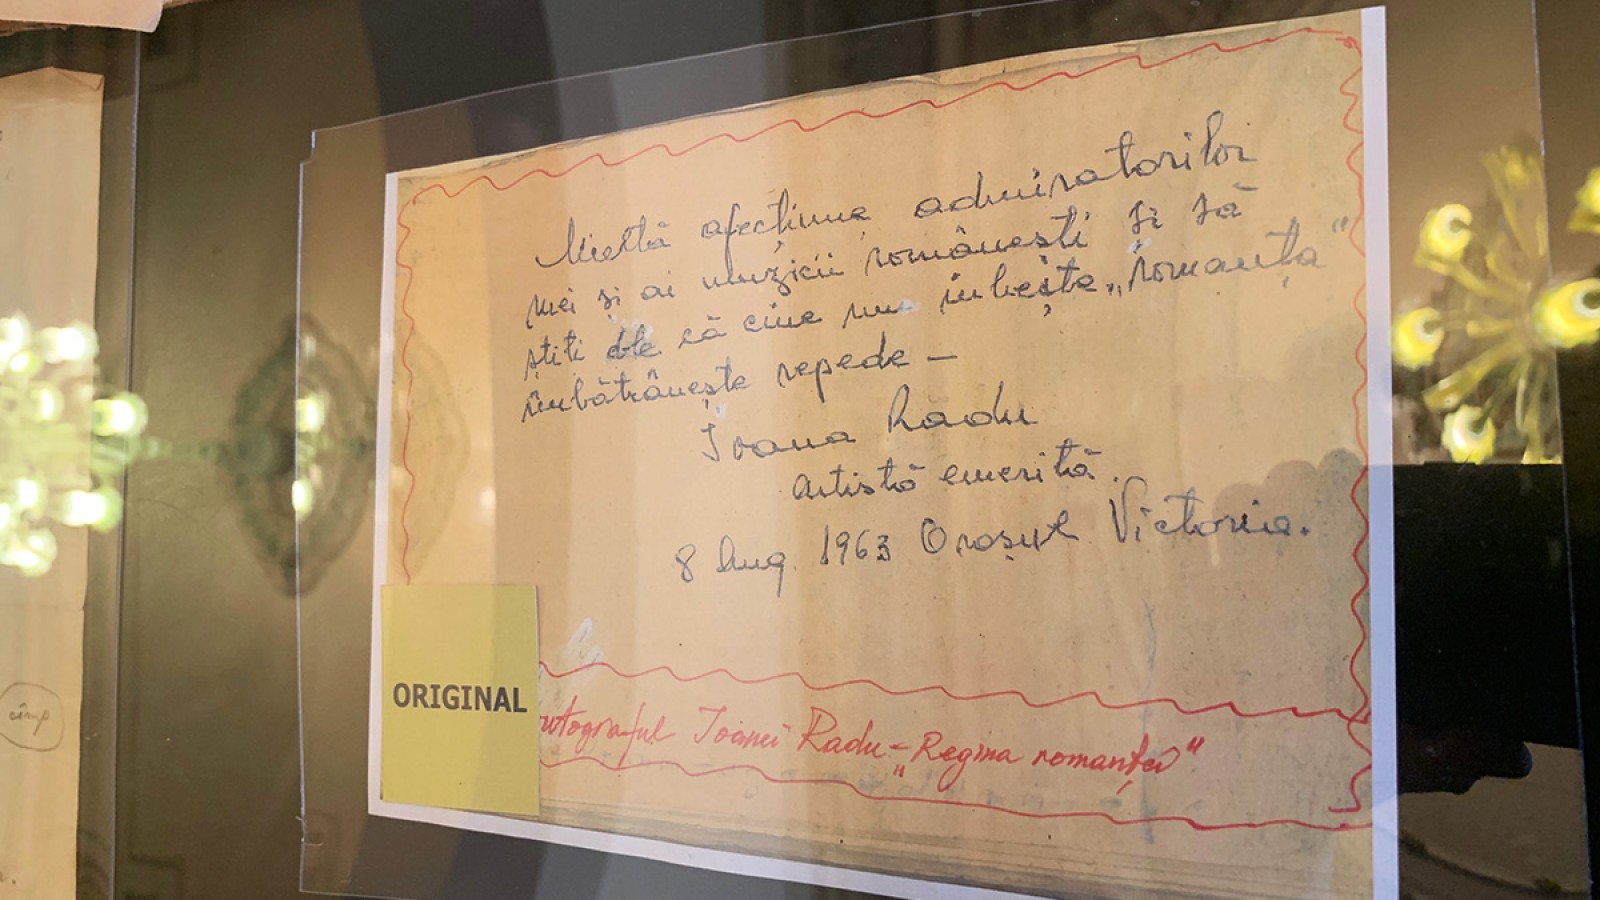 Multă afecțiune admiratorilor
mei și ai muzicii românești și să
știți că cine nu iubește „romanța”
îmbătrânește repede –
Ioana Radu
Artistă emerită.
8 Aug. 1963 Orașul Victoria.
ORIGINAL
utograful Ioanei Radu – „Regina romanței”
cîmp